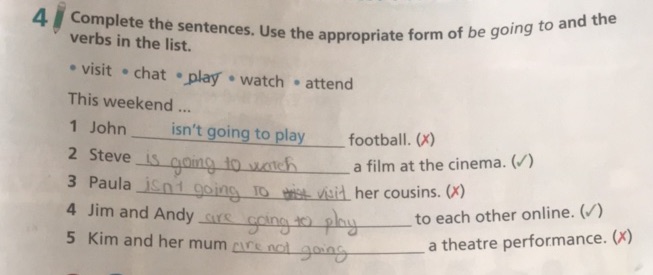 4 Complete the sentences. Use the appropriate form of be going to and the
verbs in the list.
• visit • chat • play • watch • attend
This weekend ...
1 John isn't going to play football. (✗)
2 Steve is going to watch a film at the cinema. (✓)
3 Paula isn't going to visit her cousins. (✗)
4 Jim and Andy are going to play to each other online. (✓)
5 Kim and her mum are not going a theatre performance. (✗)